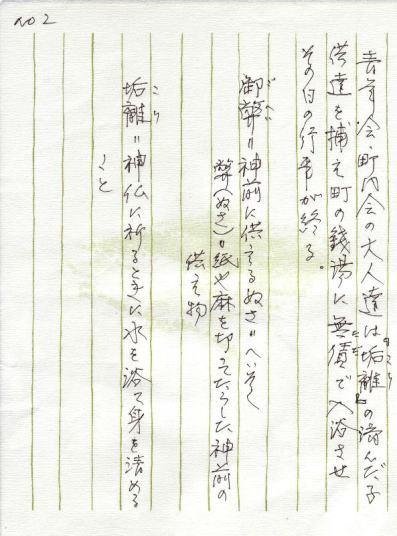 no 2
青年会、町内会の大人達は垢離の済んだ子
供達を捕え町の銭湯に無償で入浴させ
その日の行事が終る。
御幣＝神前に供えるぬさ＝へいそく
幣(ぬさ)＝紙や麻を切ってたらした神前の
供え物
垢離＝神仏に祈るときに水を浴て身を清める
こと